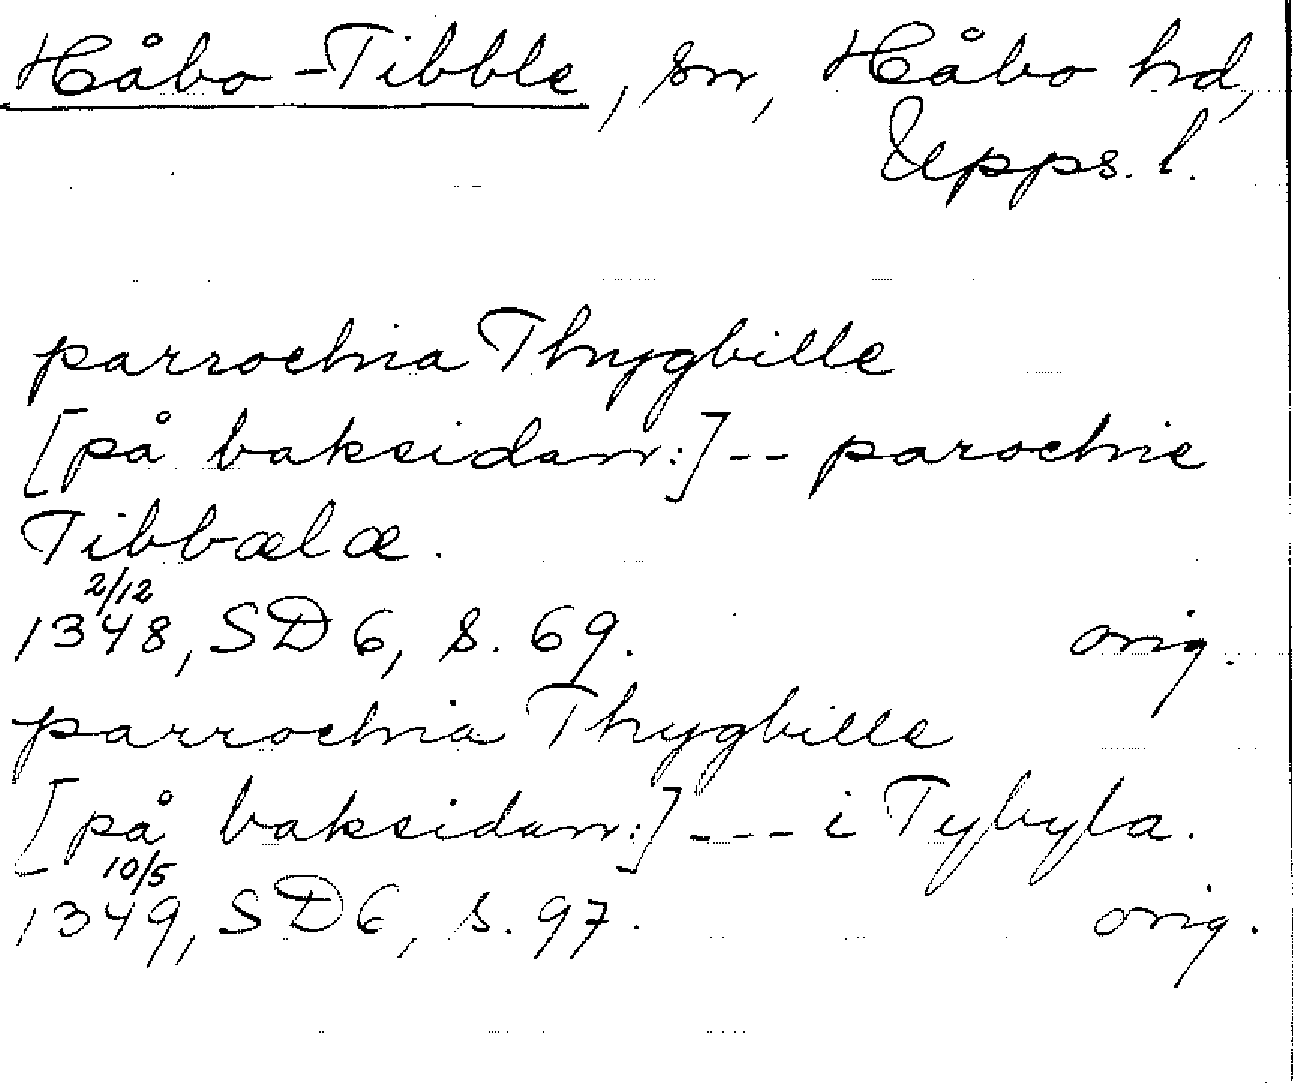 Håbo-Tibble, sn, Håbo hd,
Upps. l.
parrochia Thygbille
[på baksidan:] -- parochie
Tibbælæ.
2/12
1348, SD 6, s. 69. orig.
parrochia Thygbille
[på baksidan:] --- i Tybyla.
10/5
1349, SD 6, s. 97. orig.